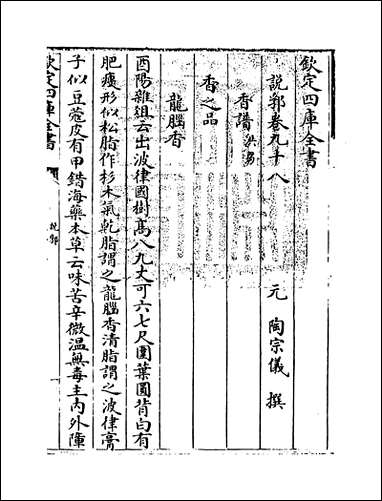 欽定四庫全書
說郛卷九十八
元 陶宗儀 撰
香譜 洪芻
香之品
龍腦香
酉陽雜俎云出波律國樹高八九丈可六七尺圍葉圓背白有
肥瘦形似松脂作杉木氣乾脂謂之龍腦香清脂謂之波律膏
子似豆蔻皮有甲錯海藥本草云味苦辛微温無毒主内外障
欽定四庫全書
說郛